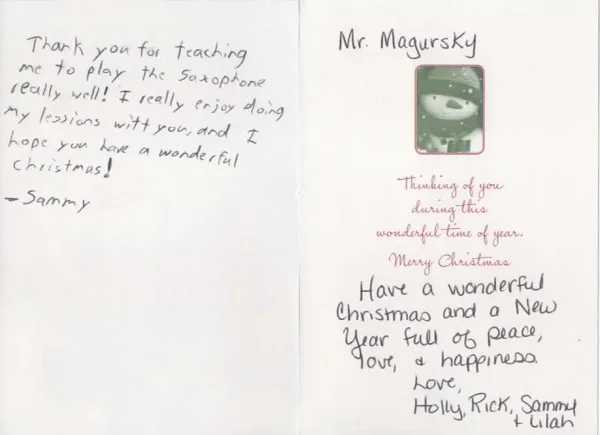 Thank you for teaching
me to play the Saxophone
really well! I really enjoy doing
my lessions witt you, and I
hope you have a wonderful
christmas!
- Sammy
Mr. Magursky
Thinking of you
during this
wonderful time of year.
Merry Christmas
Have a wonderful
Christmas and a New
Year full of peace,
love, & happiness.
Love,
Holly, Rick, Sammy
+ Lilah